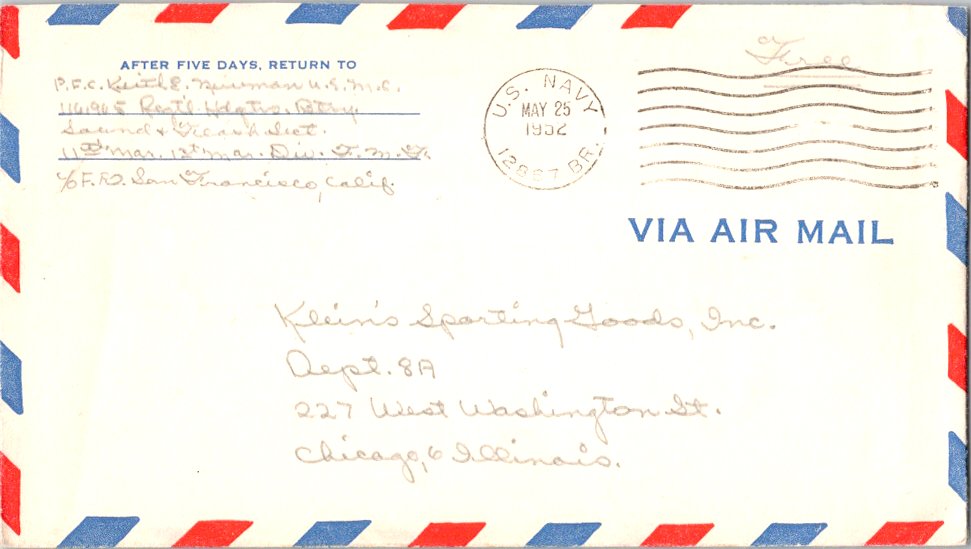 AFTER FIVE DAYS, RETURN TO
P.F.C. Keith E. Newman U.S.M.C.
Hdqtrs. Btry.
Sound & Sect.
11th Mar. 1st Mar. Div. F.M.F.
c/o F.P.O. San Francisco, Calif.
Free
U.S. NAVY
MAY 25
1952
12867 BR.
VIA AIR MAIL
Klein's Sporting Goods, Inc.
Dept. 8A
227 West Washington St.
Chicago, 6 Illinois.